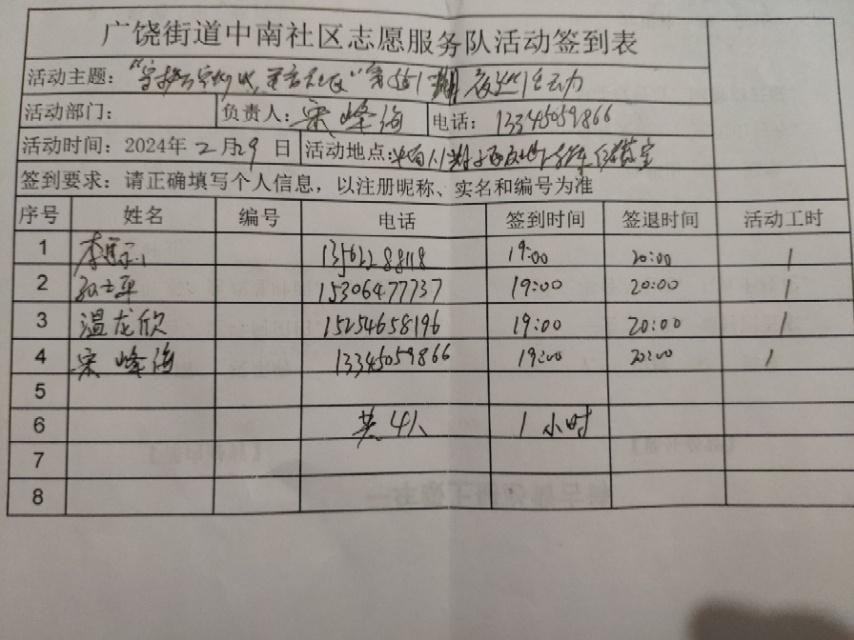 广饶街道中南社区志愿服务队活动签到表
活动主题：
活动部门： 负责人：宋峰海 电话：13345059866
活动时间：2024年2月29日 活动地点：
签到要求：请正确填写个人信息，以注册昵称、实名和编号为准
序号 姓名 编号 电话 签到时间 签退时间 活动工时
1 李 13562288118 19:00 20:00 1
2 15306477737 19:00 20:00 1
3 温龙欣 15254658196 19:00 20:00 1
4 宋峰海 13345059866 19:00 20:00 1
5
6 共4人 1小时
7
8